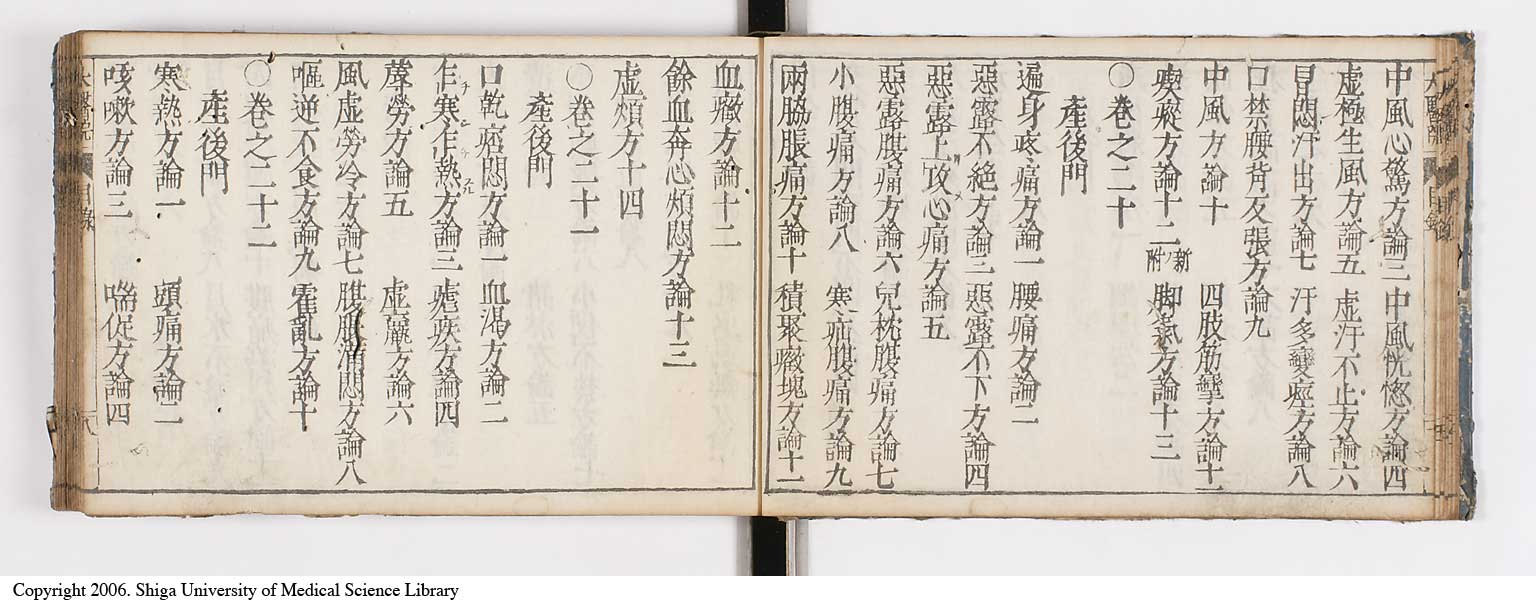 中風心驚方論三 中風恍惚方論四
虚極生風方論五 虚汗不止方論六
冒悶汗出方論七 汗多變痙方論八
口禁腰背反張方論九
中風方論十 四肢筋攣方論十一
瘈瘲方論十二 新ノ附 脚氣方論十三
〇巻之二十
産後門
遍身疼痛方論一 腰痛方論二
惡露不絶方論三 惡露不下方論四
惡露上攻心痛方論五
惡露腹痛方論六 兒枕腹痛方論七
小腹痛方論八 寒疝腹痛方論九
兩脇脹痛方論十 積聚癥塊方論十一
血癥方論十二
餘血奔心煩悶方論十三
虚煩方十四
〇巻之二十一
産後門
口乾痞悶方論一 血渇方論二
乍寒乍熱方論三 瘧疾方論四
蓐勞方論五 虚羸方論六
風虚勞冷方論七 腹脹滿悶方論八
嘔逆不食方論九 霍亂方論十
〇巻之二十二
産後門
寒熱方論一 頭痛方論二
咳嗽方論三 喘促方論四
目錄
Copyright 2006. Shiga University of Medical Science Library